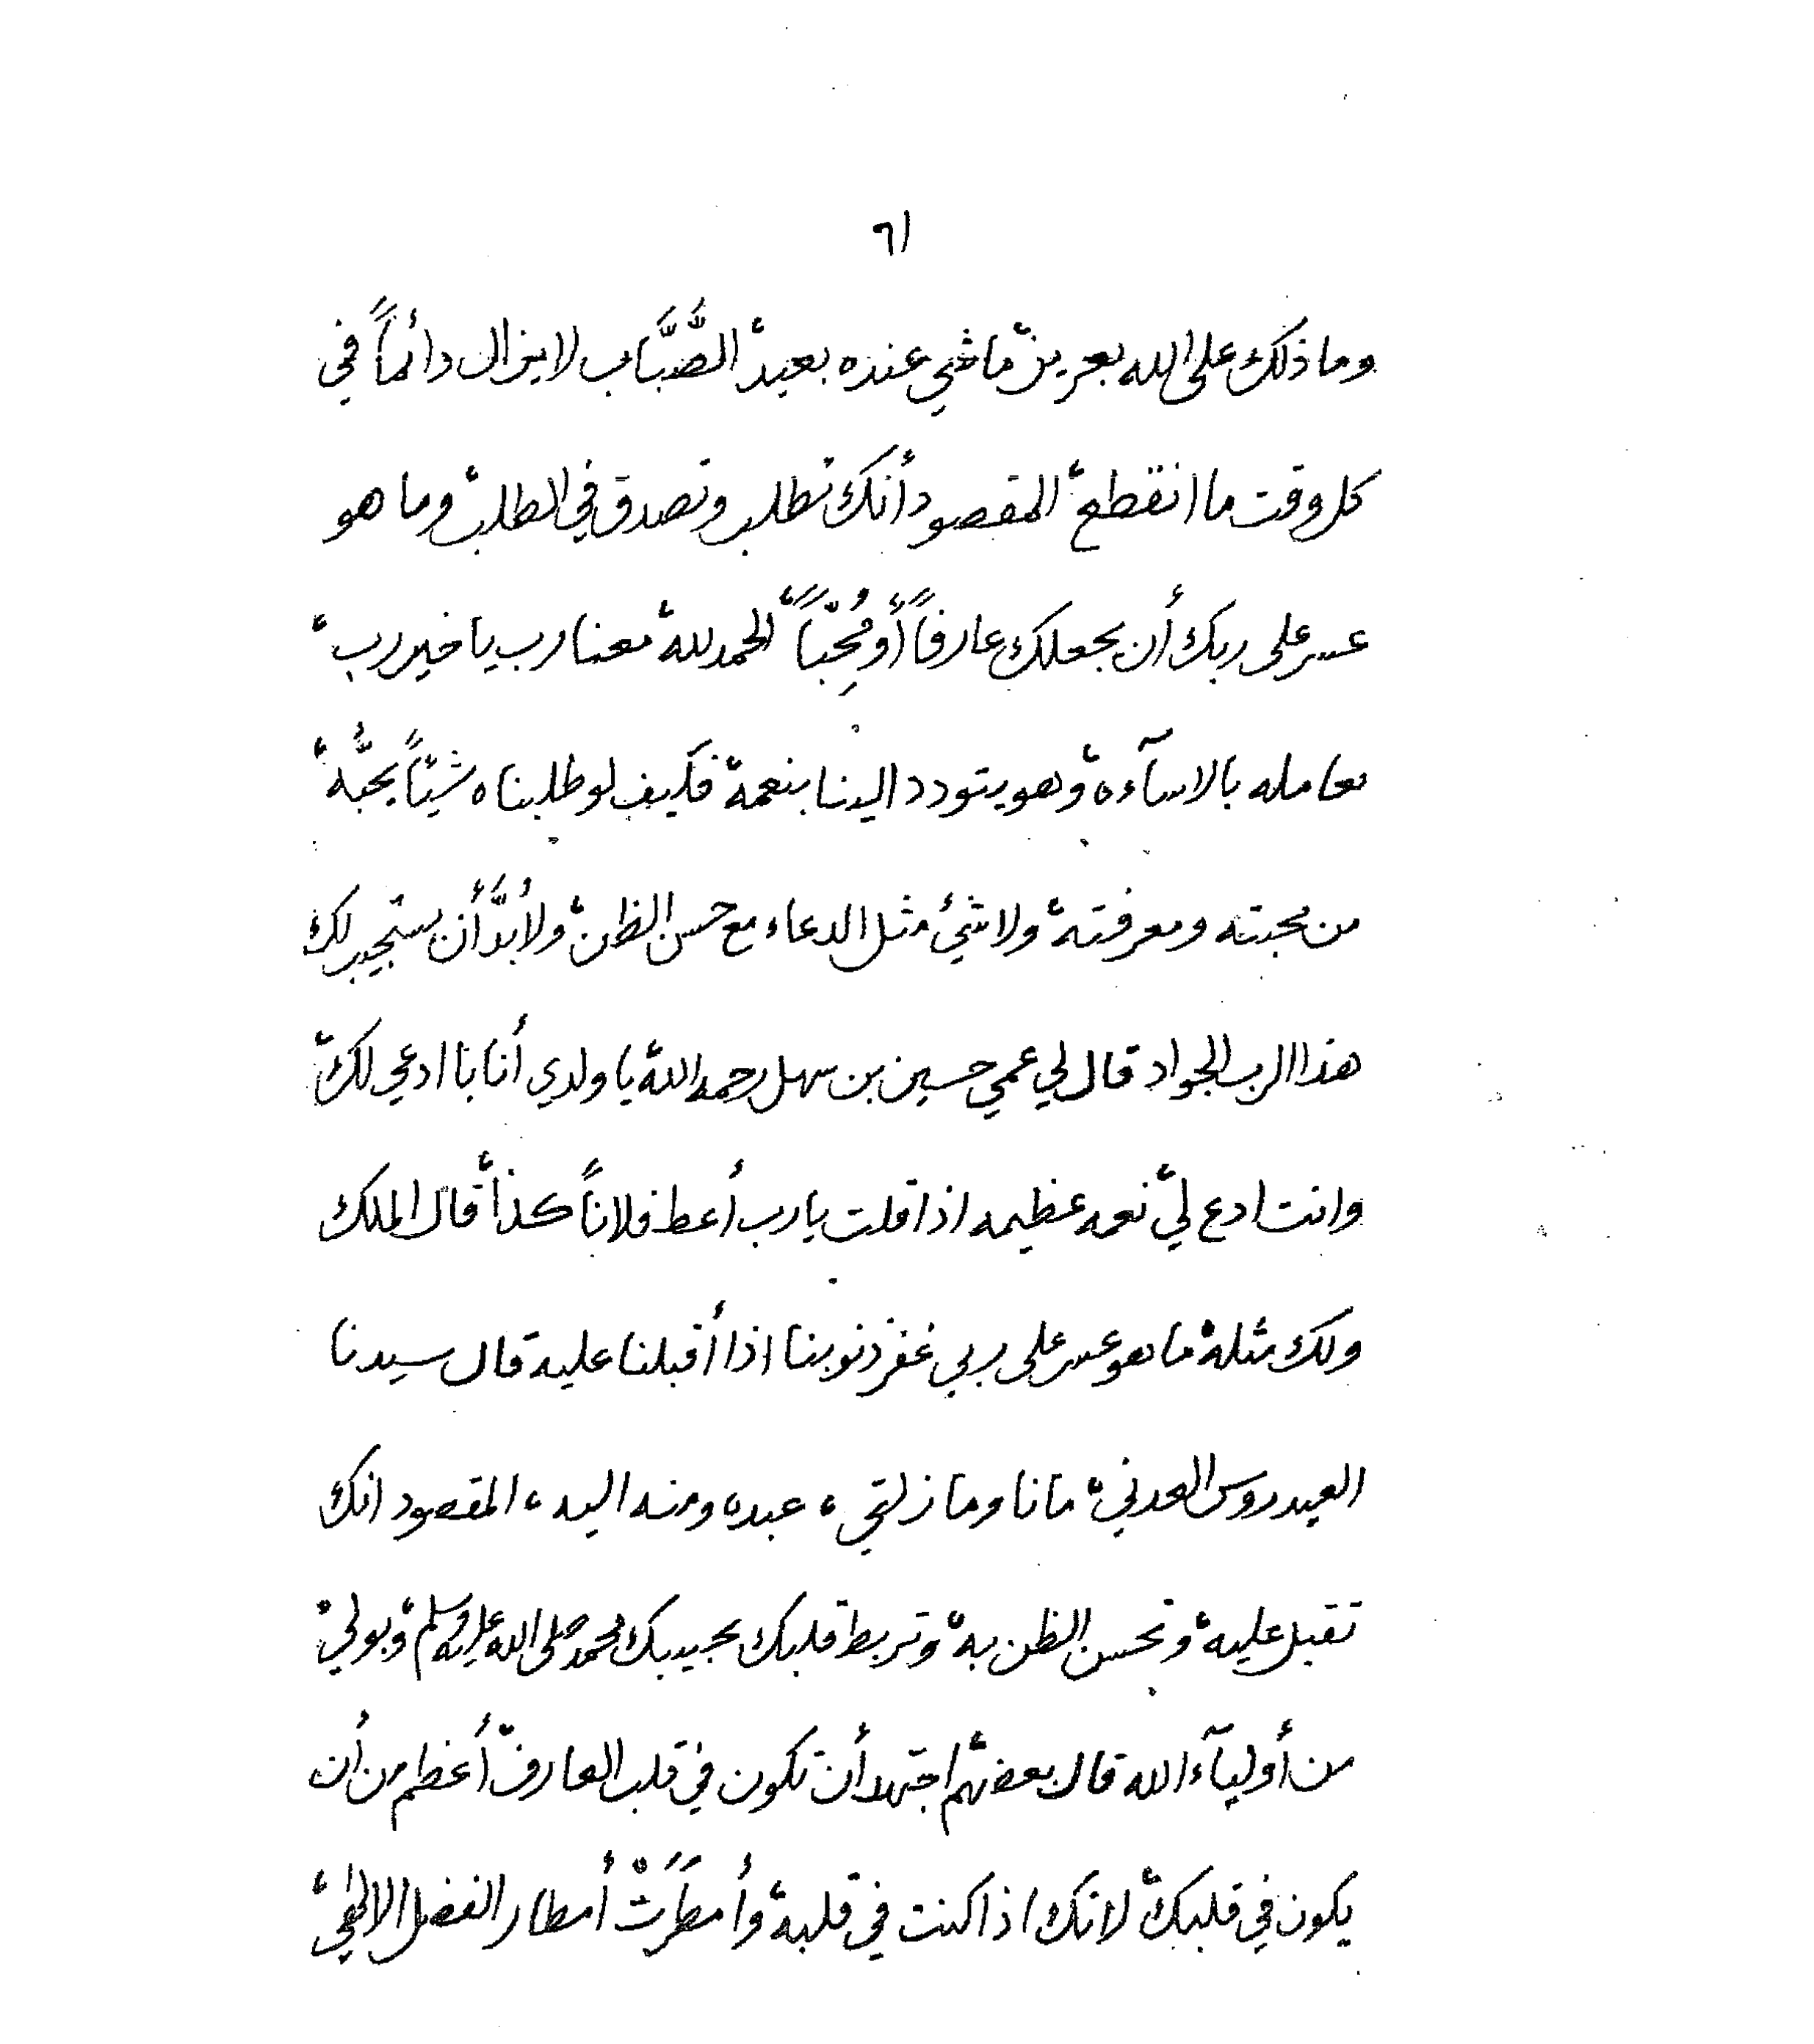 ٦١
وما ذلك على الله بعزيز، ما شي عنده بعيد، الصَّبَّاب لا يزال دائماً في
كل وقت ما انقطع، المقصود أنك تطلب وتصدق في الطلب، وما هو
عسر على ربك أن يجعلك عارفاً، أو مُحِبّاً، الحمد لله، معنا رب يا خير رب،
نعامله بالاسآءة، وهو يتودد الينا بنعمه، فكيف لو طلبناه شيئاً يحبُّه،
من محبته ومعرفته، ولا شئ مثل الدعاء مع حسن الظن، ولا بُدَّ أن يستجيب لك
هذا الرب الجواد قال لي عمي حسين بن سهل رحمه الله، يا ولدي أنا با ادعي لك،
وانت ادع لي، نعمه عظيمه اذا قلت يا رب أعط فلاناً كذا، قال الملك
ولك مثله، ما هو عسر على ربي غفر ذنوبنا اذا أقبلنا عليه قال سيدنا
العيدروس العدني، ما نا وما زلتي، عبده ومنه اليه، المقصود انك
تقبل عليه، وتحسن الظن به، وتربط قلبك بحبيبك محمد صلى الله عليه وسلم، وبولي،
من أوليآء الله قال بعضهم، اجتهد أن تكون في قلب العارف، أعظم من أن
يكون في قلبك، لانك اذا كنت في قلبه، وأمطَرَتْ أمطار الفضل الالهي،